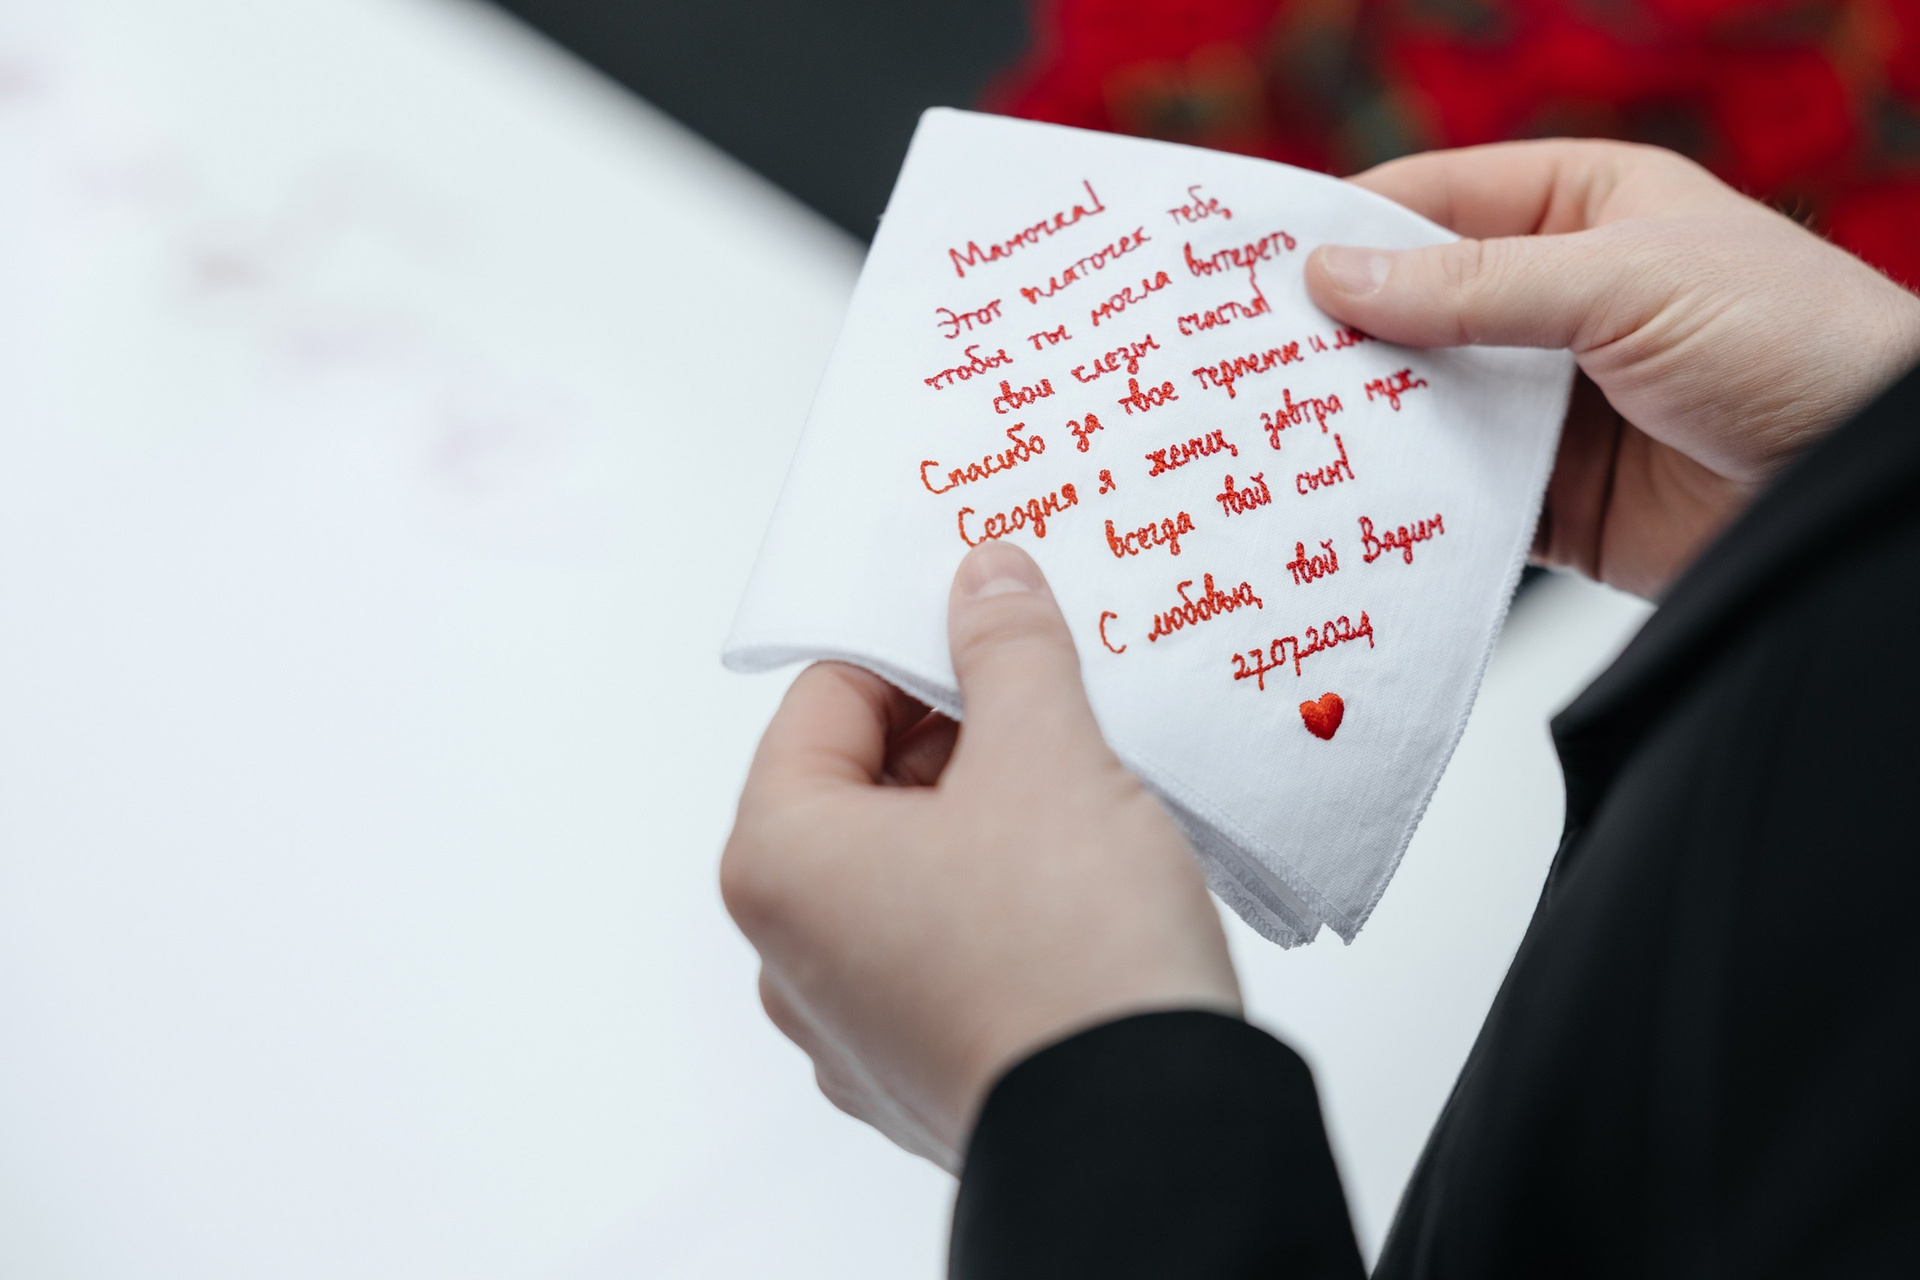 Мамочка!
Этот платочек тебе,
чтобы ты могла вытереть
свои слезы счастья!
Спасибо за твое терпение и
Сегодня я жених, завтра муж,
всегда твой сын!
С любовью, твой Вадим
27.07.2024